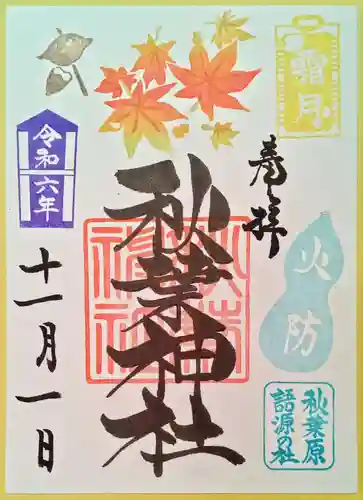 霜月
奉拝
火防
秋葉原
語源の社
秋葉神社
令和
六年
十一月一日